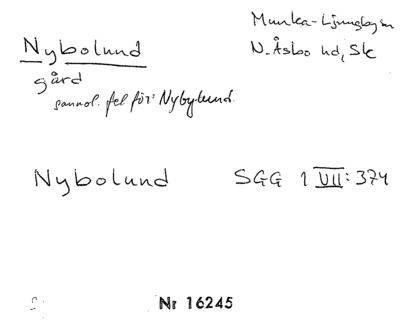 Nybolund
gård
sannol. fel för: Nybylund.
Munka-Ljungby sn
N. Åsbo hd, Sk
Nybolund SGG 1 VII: 374
Nr 16245